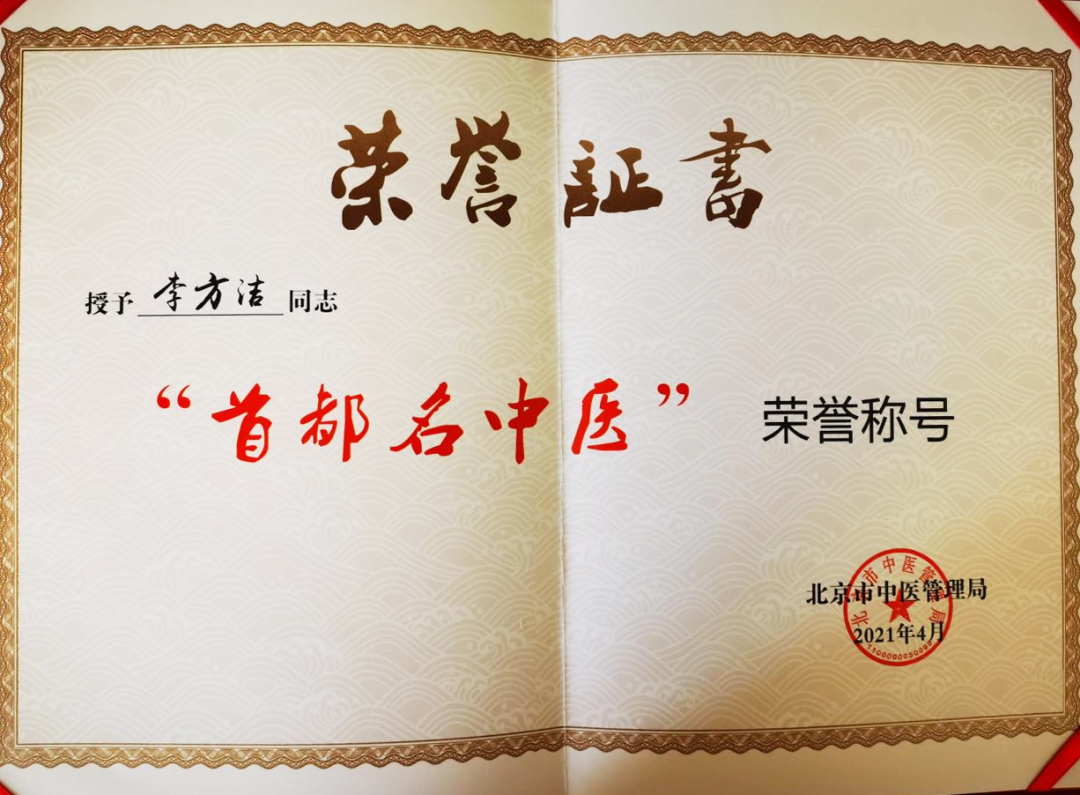 荣誉証書
授予 李方洁 同志
“首都名中医” 荣誉称号
北京市中医管理局
2021年4月
北京市中医管理局